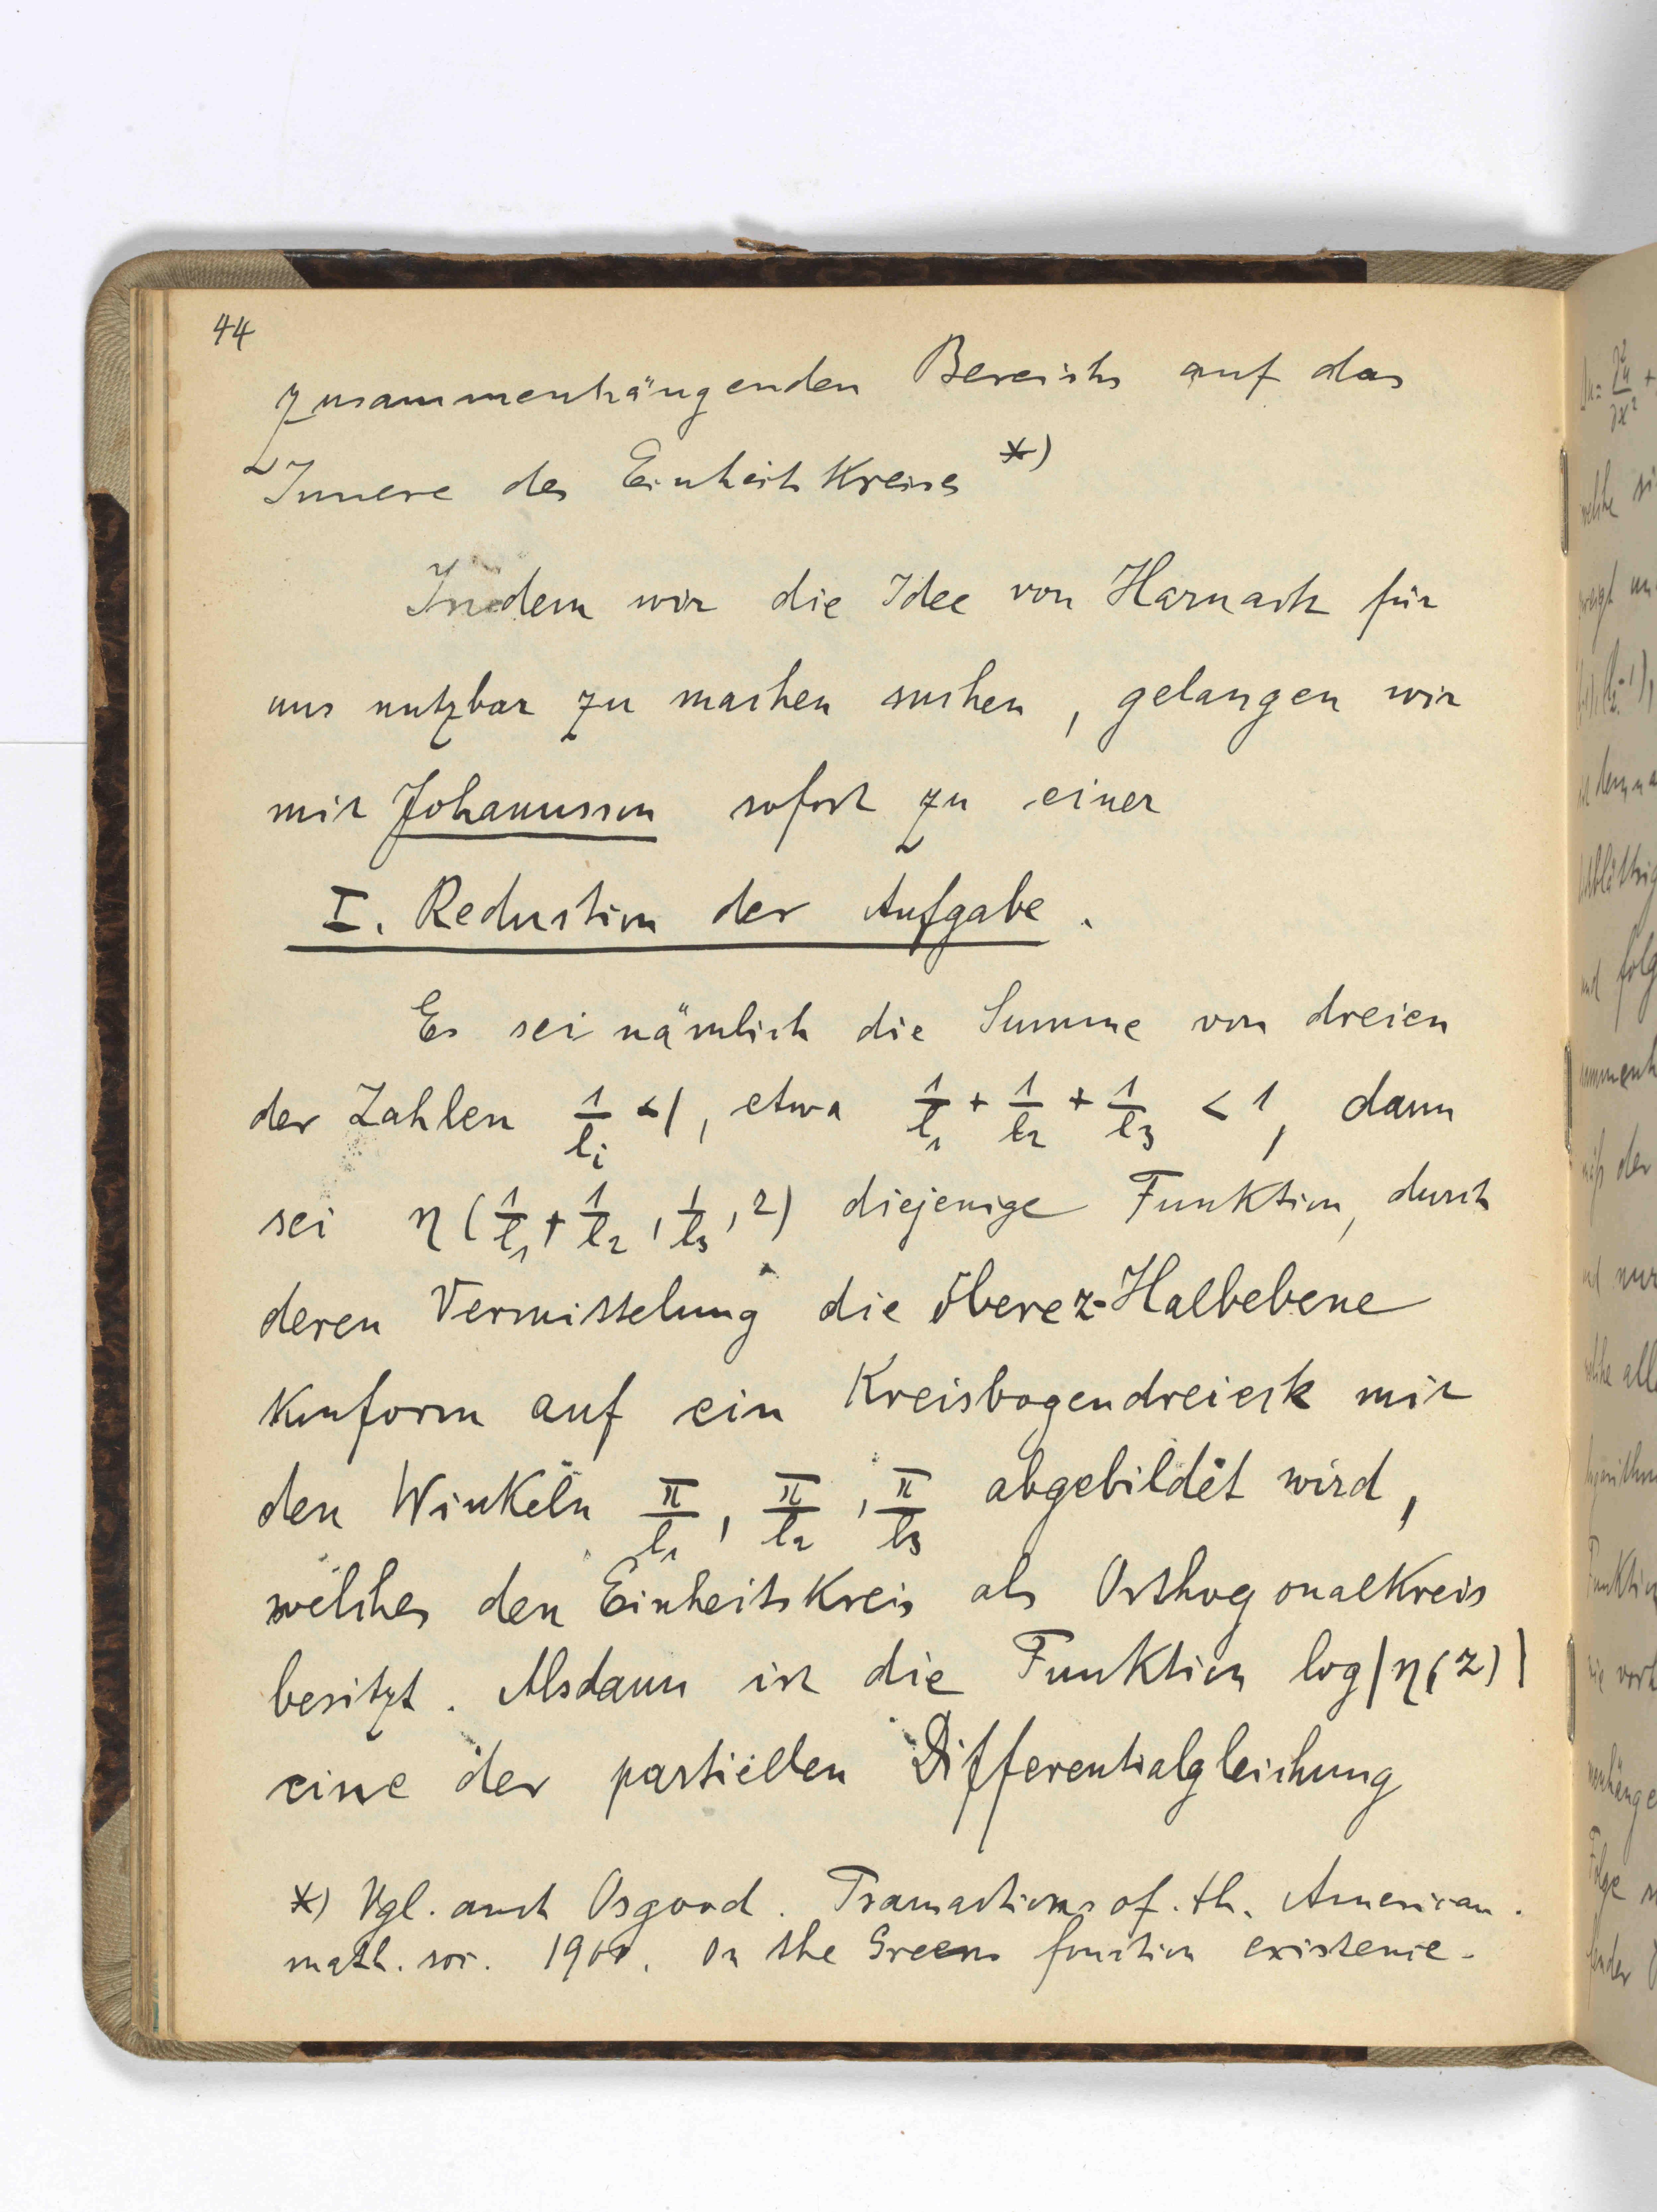 44
zusammenhängenden Bereichs auf das
Innere des Einheitskreises *)
Indem wir die Idee von Harnack für
uns nutzbar zu machen suchen, gelangen wir
mit Johansson sofort zu einer
I. Reduction der Aufgabe.
Es sei nämlich die Summe von dreien
der Zahlen 1/l_i < 1, etwa 1/l_1 + 1/l_2 + 1/l_3 < 1, dann
sei η(1/l_1 + 1/l_2, 1/l_3, z) diejenige Funktion, durch
deren Vermittelung die obere z-Halbebene
konform auf ein Kreisbogendreieck mit
den Winkeln π/l_1, π/l_2, π/l_3 abgebildet wird,
welches den Einheitskreis als Orthogonalkreis
besitzt. Alsdann ist die Funktion log|η(z)|
eine der partiellen Differentialgleichung
*) Vgl. auch Osgood. Transactions of. th. American.
math. soc. 1900. On the Greens function existence.